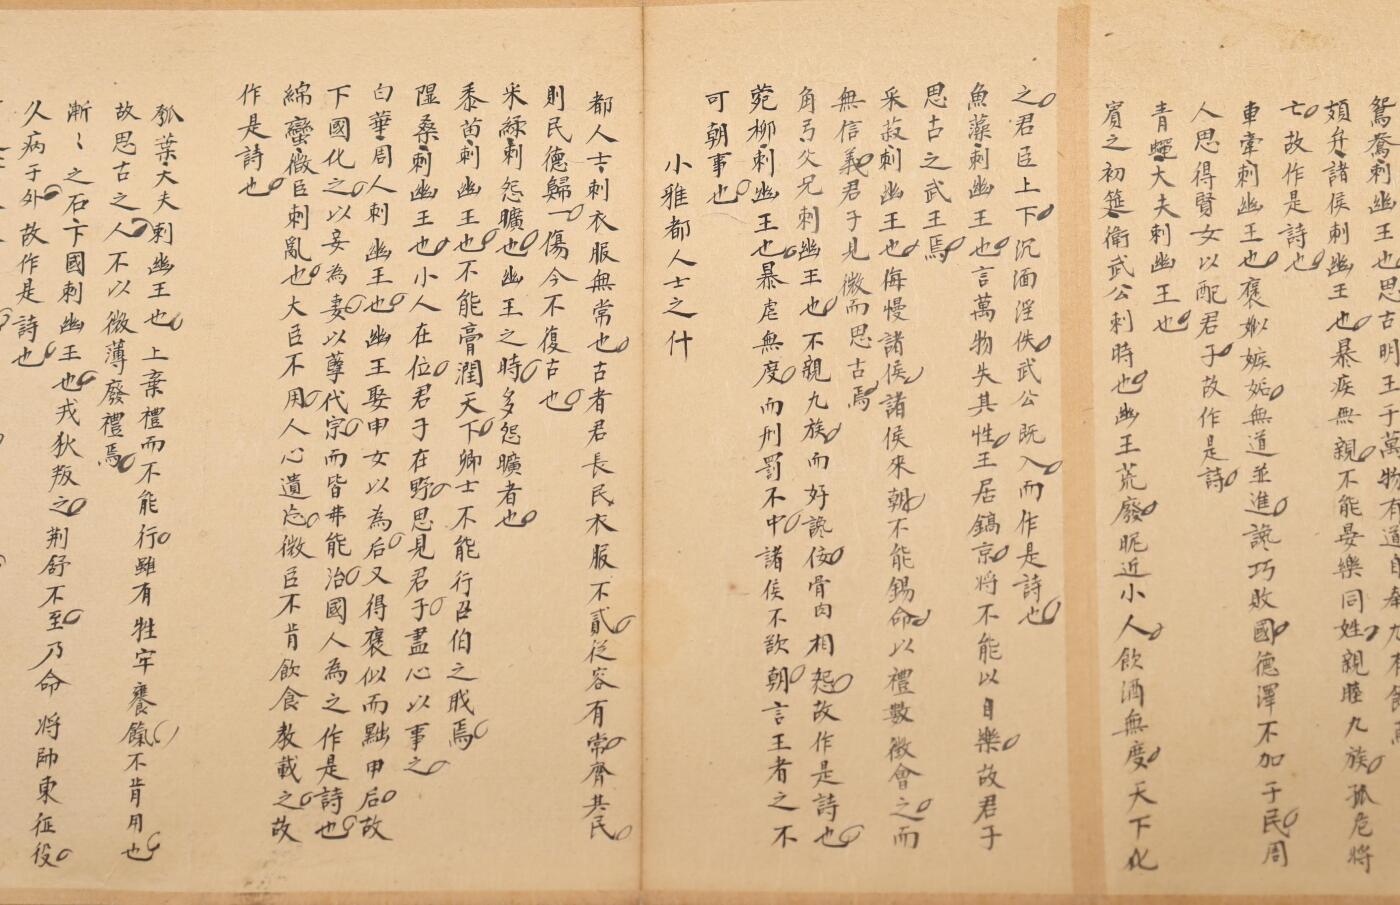 鴛鴦刺幽王也思古明王于萬物有道自奉
頍弁諸侯刺幽王也暴疾無親不能晏樂同姓親睦九族孤危將
亡故作是詩也
車舝刺幽王也褒姒嫉妬無道並進讒巧敗國德澤不加于民周
人思得賢女以配君子故作是詩
青蠅大夫刺幽王也
賓之初筵衛武公刺時也幽王荒廢昵近小人飲酒無度天下化
之君臣上下沉湎淫佚武公既入而作是詩也
魚藻刺幽王也言萬物失其性王居鎬京將不能以自樂故君子
思古之武王焉
采菽刺幽王也侮慢諸侯諸侯來朝不能錫命以禮數徵會之而
無信義君子見微而思古焉
角弓父兄刺幽王也不親九族而好讒佞骨肉相怨故作是詩也
菀柳刺幽王也暴虐無度而刑罰不中諸侯不欲朝言王者之不
可朝事也
小雅都人士之什
都人士刺衣服無常也古者君長民衣服不貳從容有常齊其民
則民德歸一傷今不復古也
采綠刺怨曠也幽王之時多怨曠者也
黍苗刺幽王也不能膏潤天下卿士不能行召伯之職焉
隰桑刺幽王也小人在位君子在野思見君子盡心以事之
白華周人刺幽王也幽王娶申女以為后又得褒似而黜申后故
下國化之以妾為妻以孽代宗而皆弗能治國人為之作是詩也
綿蠻微臣刺亂也大臣不用人心遺忘微臣不肯飲食教載之故
作是詩也
瓠葉大夫刺幽王也上棄禮而不能行雖有牲牢饔餼不肯用也
故思古之人不以微薄廢禮焉
漸〻之石下國刺幽王也戎狄叛之荆舒不至乃命將帥東征役
久病于外故作是詩也